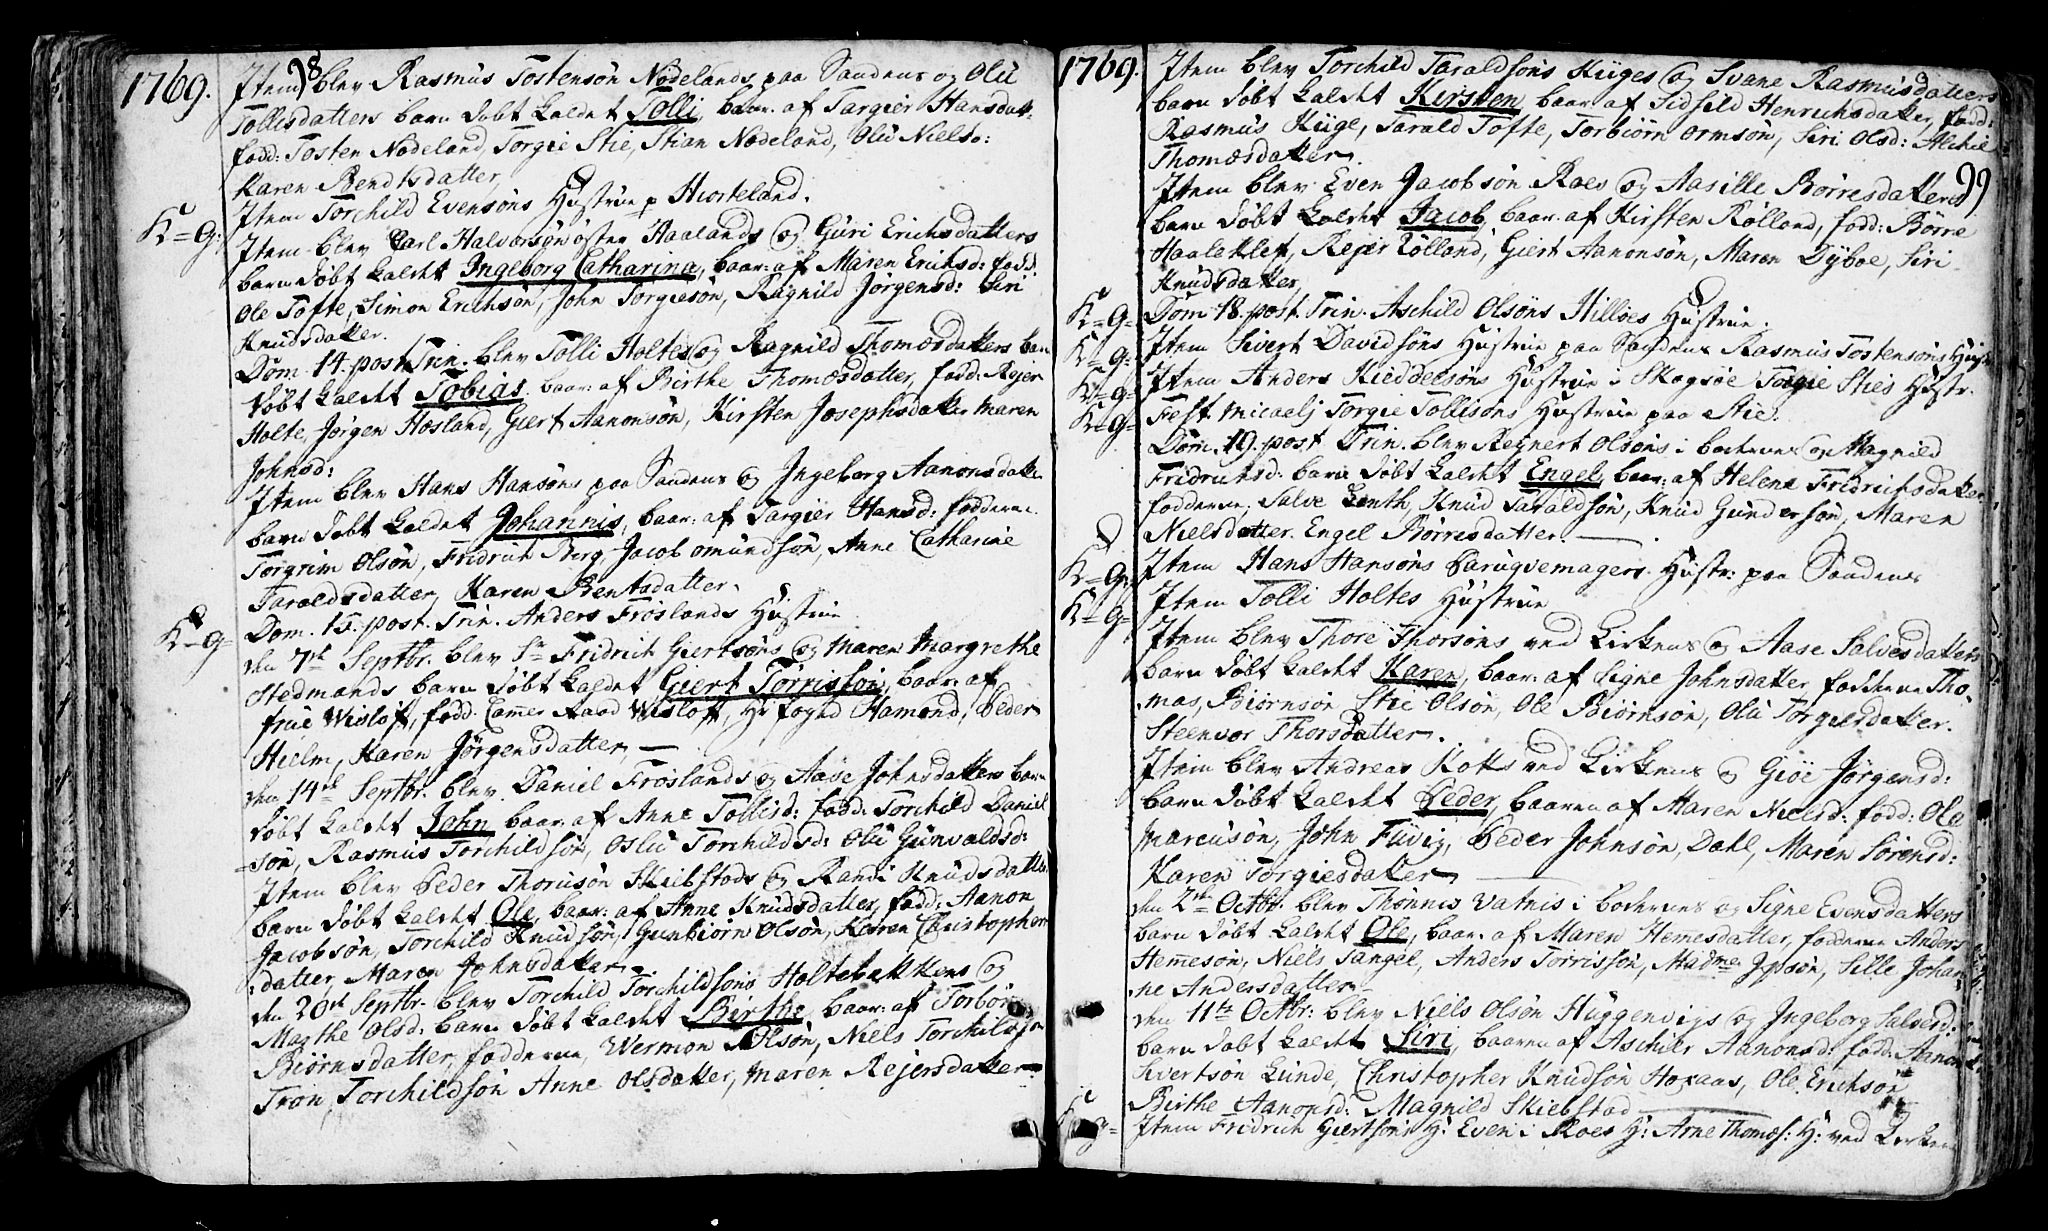 1769.
98
Item blev Rasmus Tostensøn Nodelands paa Sandenes og Olu
Tollisdatters barn døbt kaldet Tolli, baar: af Targier Hansdatt:
fadd: Tosten Nodeland, Torgie Stie, Stian Nodeland, Olu Nielsd:
Karen Bendtsdatter,
Item Torchild Evensøns Hustrue p Hiorteland.
K=G:
Item blev Carl Halvorsøn øster Haalands og Guri Erichsdatters
barn døbt kaldet Ingeborg Catharina, baar: af Maren Erichsd: fadd:
Ole Tofte, Simon Erichsøn, John Torgiesøn, Ragnild Jørgensd: Siri
Knudsdatter.
Dom. 14. post Trin. blev Tolli Holtes og Ragnild Thomæsdatters barn
døbt kaldet Tobias, baar: af Birthe Thomæsdatter, fadd: Rejer
Holte, Jørgen Hæsland, Giert Aanonsøn, Kirsten Josephsdatter Maren
Johnsd:
Item blev Hans Hansøns paa Sandenes og Ingeborg Aanonsdatters
barn døbt kaldet Johannis, baar: af Targier Hansd: fadderne
Torgrim Olsøn, Fridrich Berg, Jacob omundsøn, Anne Catharine
Taraldsdatter, Karen Bentsdatter.
K=G
Dom. 15. post. Trin. Anders Frøslands Hustrue
den 7de Septbr. blev Sr Fridrich Giertsøns og Maren Margrethe
Stedmands barn døbt kaldet Giert Tørrisføi, baar: af
frue Wisløff, fadd: Cammer Raad Wisløff, Hr foged Hamond, Peder
Hielm, Karen Jörgensdatter,
den 14de Septbr. blev Daniel Frøslands og Aase Johnsdatters barn
døbt kaldet John baar: af Anne Tollisd: fadd: Torchild Daniel
søn, Rasmus Torchildsøn, Oslu Torchildsd: Olu Gunvaldsd:
Item blev Peder Thorusøn Skeibstods og Randi Knudsdatters
barn døbt kaldet Ole, baar: af Anne Knudsdatter, fadd: Aanon
Jacobsøn, Torchild Knudsøn, Gunbiørn Olsøn, Karen Christophers
datter, Maren Johnsdatter
den 20de Septbr. blev Torchild Torchildsøns Holtebakkens og
Marthe Olsd: barn døbt kaldet Birthe, baar: af Torbør
Biørnsdatter, fadderne, Wermon Olsøn, Niels Torchildsøn
Tron Torchildsøn Anne Olsdatter, Maren Rejersdatter
1769.
99
Item blev Torchild Taraldsøns Kuges og Svane Rasmusdatters
barn døbt kaldet Kirsten, baar: af Sidsild Henrichsdatter, fadd:
Rasmus Kuge, Tarald Tofte, Torbiørn Ormsøn, Siri Olsd: Alchie
Thomæsdatter.
Item blev Even Jacobsøn Roes og Aasille Børresdatters
barn døbt kaldet Jacob, baar: af Kirsten Rølland, fadd: Børre
Haaleklef, Rejer Rølland, Giert Aanonsøn, Maren Dyboe, Siri
Knudsdatter,
K=G=
Dom. 18. post. Trin. Aschild Olsøns Hilløes Hustrue.
K=G:
Item Sivert Davidsøns Hustrue paa Sandenes Rasmus Tostensøns Hustr:
K=G=
Item Anders Kieddelsøns Hustrue i Skogsøe Torgie Sties Hustr.
K=G=
Fest Micaelj Torgie Tollisøns Hustrue paa Stie.
Dom. 19. post Trin. blev Regnert Olsøns i boderne og Magnild
Fridrichsd: barn døbt kaldet Engel, baar: af Helene Fridrichsdatter
fadderne, Salve Lenth, Knud Taraldsøn, Knud Gundersøn, Maren
Nielsdatter. Engel Børresdatter.
K=G:
Item Hans Hansøns Paruqvemagers Hustr: paa Sandenes
K=G=
Item Tolli Holtes Hustrue
Item blev Thore Thorsøns ved Kirkens og Aase Salvesdatters
barn døbt kaldet Karen, baar: af Signe Johnsdatter fadderne Tho
mas, Biørnsøn Stie Olsøn, Ole Biørnsøn, Olu Torgiersdatter.
Steenvor Thorsdatter.
Item blev Andreas Kotts ved Kirkens og Giøe Jørgensd:
barn døbt kaldet Peder, baaren af Maren Nielsd: fadd: Ole
Marcusøn, John Fivig, Peder Johnsøn, Dahl, Maren Sørensd:
Karen Torgiesdatter
den 2de Octbr. blev Thønnis Vatnis i boderne og Signe Evensdatters
barn døbt kaldet Ole, baar. af Maren Hemesdatter, fadderne Anders
Hemesøn, Niels Tangel, Anders Torrissøn, Madme Ipsøn, Sille Johan
ne Andersdatter
den 11te Octbr: blev Niels Olsøn Huggenvigs og Ingeborg Salvesd:
barn døbt kaldet Siri, baaren af Aschier Aanonsd: fadd: Aanon
Sivertsøn Lunde, Christopher Knudsøn Horaas, Ole Erichsøn
Birthe Aanonsd: Magnild Skiebstad
K=G=
Item Fridrich Giertsøns H: Even i Roes H: Arne Thomæs: H: ved Kirken